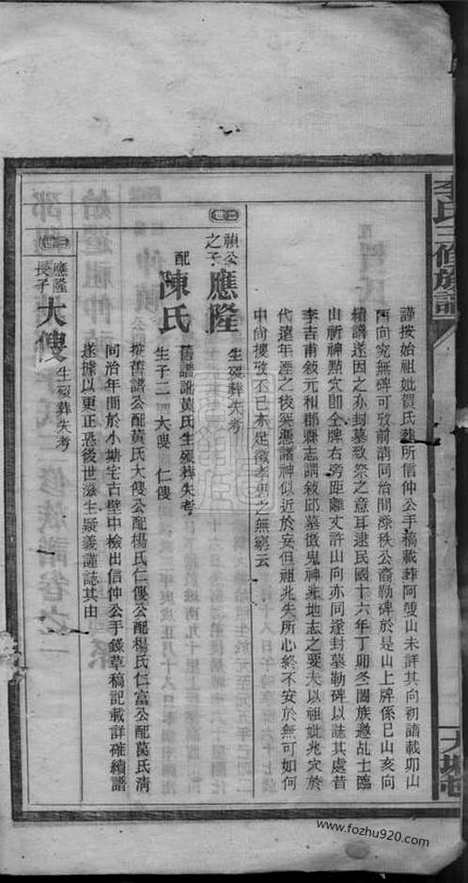 李氏三修族譜
謹按始祖妣賀氏葬所信仲公手稿載葬阿雙山未詳其向初譜載卯山
酉向究無碑可攷前清同治間灤秩公裔勒碑於是山上牌係巳山亥向
續譜遂因之亦封墓致祭之意耳逮民國十六年丁卯冬闔族邀乩士臨
山祈神點穴即全牌右旁距離丈許山向亦同遂封墓勒碑以誌其處昔
李吉甫敘元和郡縣志謂敘邱墓徵鬼神非地志之要夫以祖妣兆穴於
代遠年湮之後與憑諸神似近於妄但祖兆失所心終不安於無可如何
中尚摟攷不已亦足徵孝思之無窮云
禎公之子應隆 生碩葬失考
配陳氏 舊譜訛黃氏生碩葬失考
生子二 大傁 仁傁
按舊譜公配黃氏大傁公配楊氏仁傁公配楊氏仁富公配葛氏清
同治年間於小塘宅古壁中檢出信仲公手錄草稿記載詳確續譜
遂據以更正恐後世滋生疑義謹誌其由
應隆長子大傁 生碩葬失考
大塘宅
www.fozhu920.com